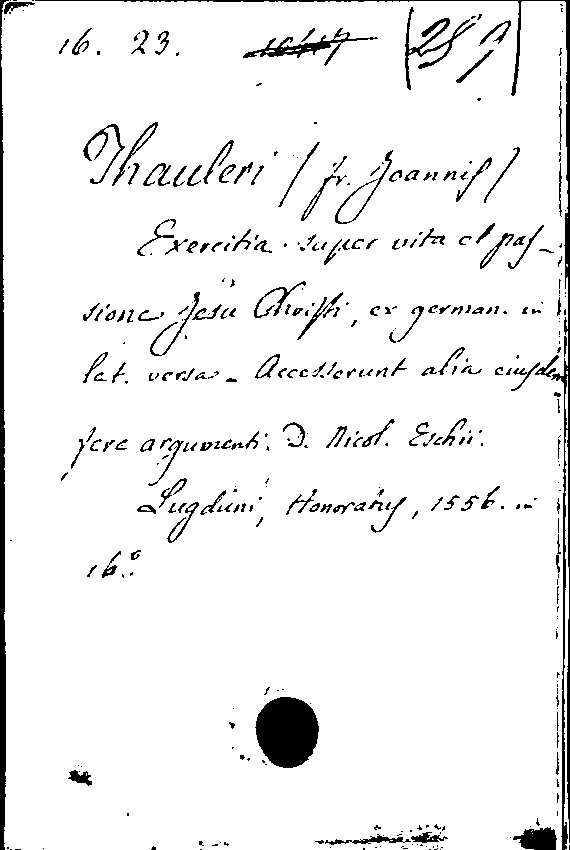 16. 23. (289)
Thauleri / fr. Joannis /
Exercitia super vita et pas-
sione Jesu Christi, ex german. in
lat. versa - Accesserunt alia eiusdem
fere argumenti. D. Nicol. Eschii.
Lugduni, Honoratus, 1556. in
16.º